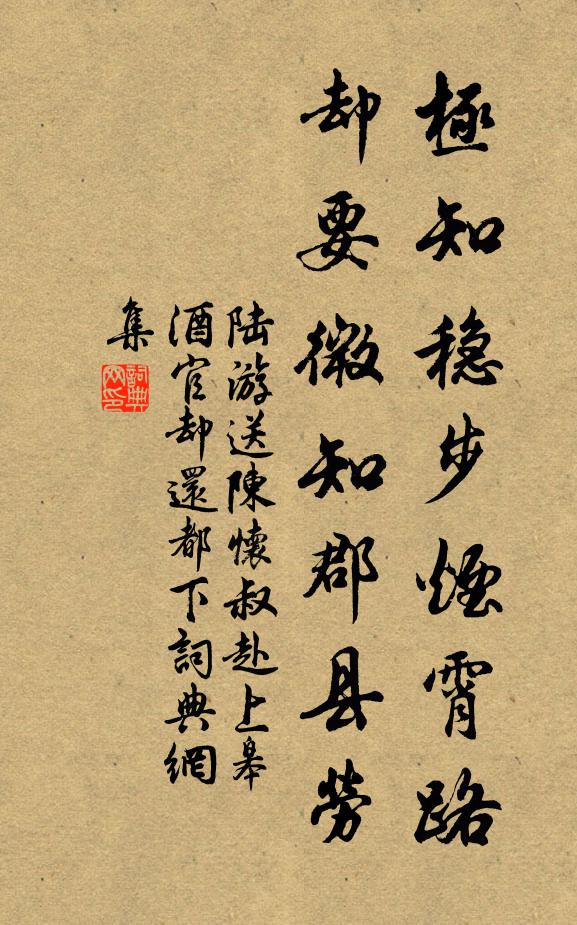 極知稳步煙霄路
却要微知郡县勞
陆游送陳懷叔赴上皋
酒官却還都下詞典網
集
詞典網印